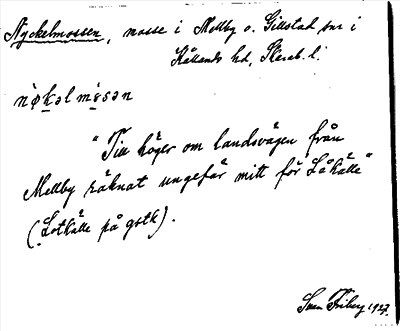 Nyckelmossen, mosse i Mellby o. Gillstad snr i
Kållands hd, Skarab. l.
nø̀kəl mɷ̀sən
"Till höger om landsvägen från
Mellby räknat ungefär mitt för Låkälle"
(Lotkälle på gstk).
Sven Friberg 1927.